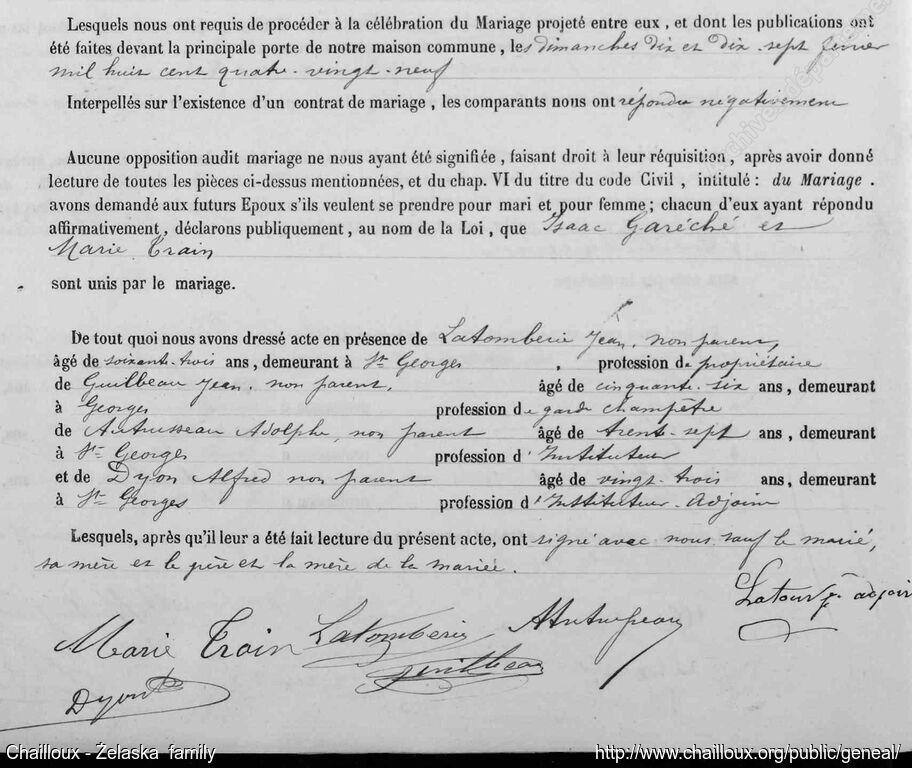 Lesquels nous ont requis de procéder à la célébration du Mariage projeté entre eux, et dont les publications ont
été faites devant la principale porte de notre maison commune, les dimanches dix et dix-sept février
mil huit cent quatre-vingt-neuf
Interpellés sur l'existence d'un contrat de mariage, les comparants nous ont répondu négativement
Aucune opposition audit mariage ne nous ayant été signifiée, faisant droit à leur réquisition, après avoir donné
lecture de toutes les pièces ci-dessus mentionnées, et du chap. VI du titre du code Civil, intitulé: du Mariage.
avons demandé aux futurs Epoux s'ils veulent se prendre pour mari et pour femme; chacun d'eux ayant répondu
affirmativement, déclarons publiquement, au nom de la Loi, que Isaac Garéché et
Marie Train
sont unis par le mariage.
De tout quoi nous avons dressé acte en présence de Latomberie Jean, non parent,
âgé de soixante-trois ans, demeurant à St Georges, profession de propriétaire
de Guilbeau Jean, non parent, âgé de cinquante-six ans, demeurant
à Georges profession de garde champêtre
de Autrusseau Adolphe, non parent âgé de trente-sept ans, demeurant
à St Georges profession d'Instituteur
et de Dyon Alfred non parent âgé de vingt-trois ans, demeurant
à St Georges profession d'Instituteur-adjoint
Lesquels, après qu'il leur a été fait lecture du présent acte, ont signé avec nous sauf le marié,
sa mère et le père et la mère de la mariée.
Latour adjoint
Marie Train Latomberie
Guilbeau
Dyon
Chailloux - Żelaska family http://www.chailloux.org/public/geneal/